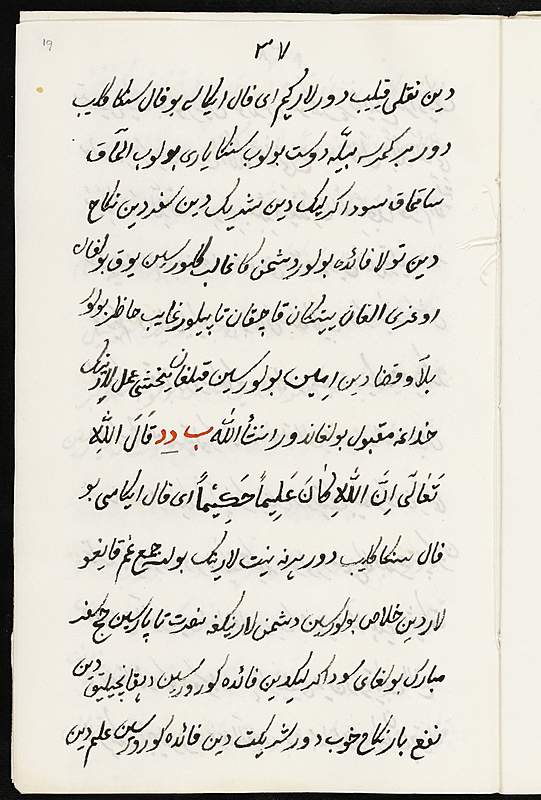 19
٣٧
دین نقلی قیلیب دورلار کیم ای فال ایکاسی بو فال سنکا کلیب
دور هر کمرسه بیله دوست بولوب سنکا یاری بولوب الماق
ساتماق سوداکرلیک دین شریک دین سفر دین نکاح
دین تولا فائده بولور دشمن کا غالب کلورسین یوق بولغان
اوغری الغان یتکان قاچقان تاپیلور غایب حاظر بولور
بلاّ و قضا دین امین بولورسین قیلغان یخشی عمل لارینک
خداغه مقبول بولغاندور انشأالله ب د د قَالَ اللهُ
تَعٰالَی اِنَّ اللهَ کٰانَ عَلِیماً حَکِیْماً ای فال ایکاسی بو
فال سنکا کلیب دور هر نه نیت لارینک بولسه جمع غم قایغو
لاردین خلاص بولورسین دشمن لارینکغه نصرت تاپارسین حج سفر
مبارک بولغای سوداکرلیکدین فائده کورورسین دهقانچیلیق دین
نفع بار نکاح خوب دور شریکت دین فائده کورورسین علم دین